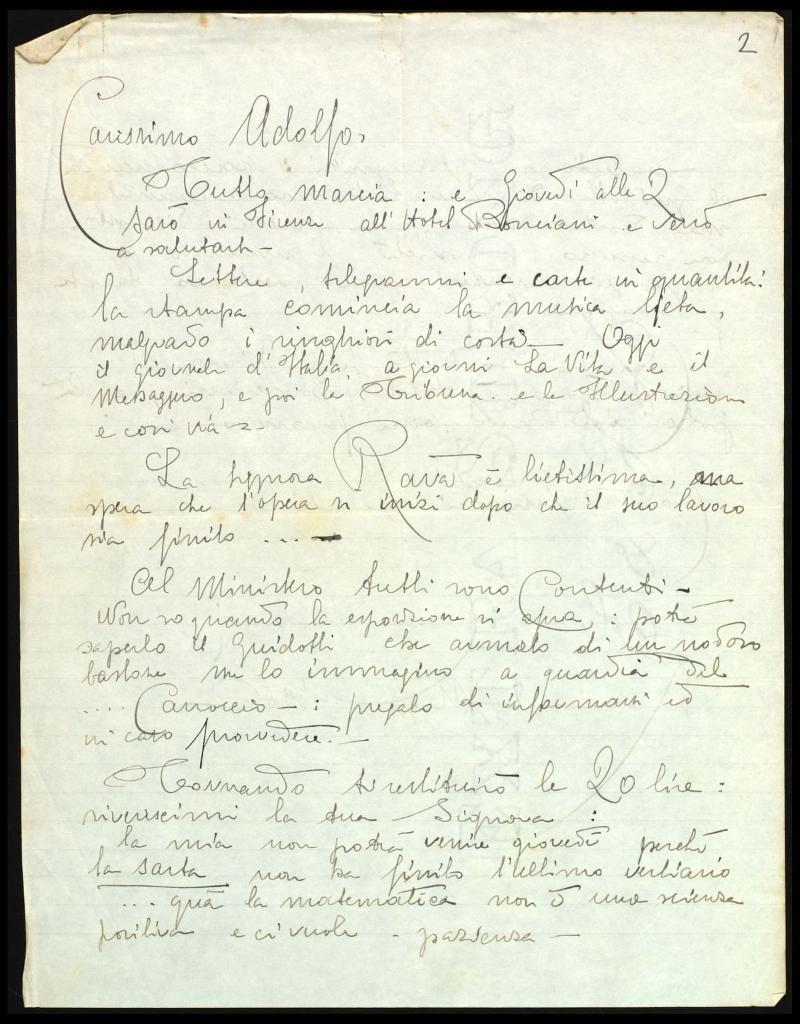 2
Carissimo Adolfo,
Tutto marcia : e Giovedì alle 2
sarò in Firenze all'Hotel Bonciani e verrò
a salutarti -
Lettere, telegrammi e carte in quantità:
la stampa comincia la musica lieta,
malgrado i ringhiosi di costà - Oggi
il giornale d'Italia, a giorni La Vita e il
Messaggero, e poi la Tribuna. e le Illustrazioni
e così via -
La signora Ravà è lietissima, ma
spera che l'opera si inizi dopo che il suo lavoro
sia finito ... -
Al Ministero tutti sono Contenti -
Non so quando la esposizione si apra, : potrà
saperlo il Guidotti che armato di un nodoso
bastone me lo immagino a guardia del
.... Carroccio - : pregalo di informarsi ed
in caso provvedere. -
Tornando ti restituirò le 20 lire :
riveriscimi la tua Signora :
la mia non potrà venire giovedì perchè
la sarta non ha finito l'ultimo vestiario
... quà la matematica non è una scienza
positiva e ci vuole - pazienza -